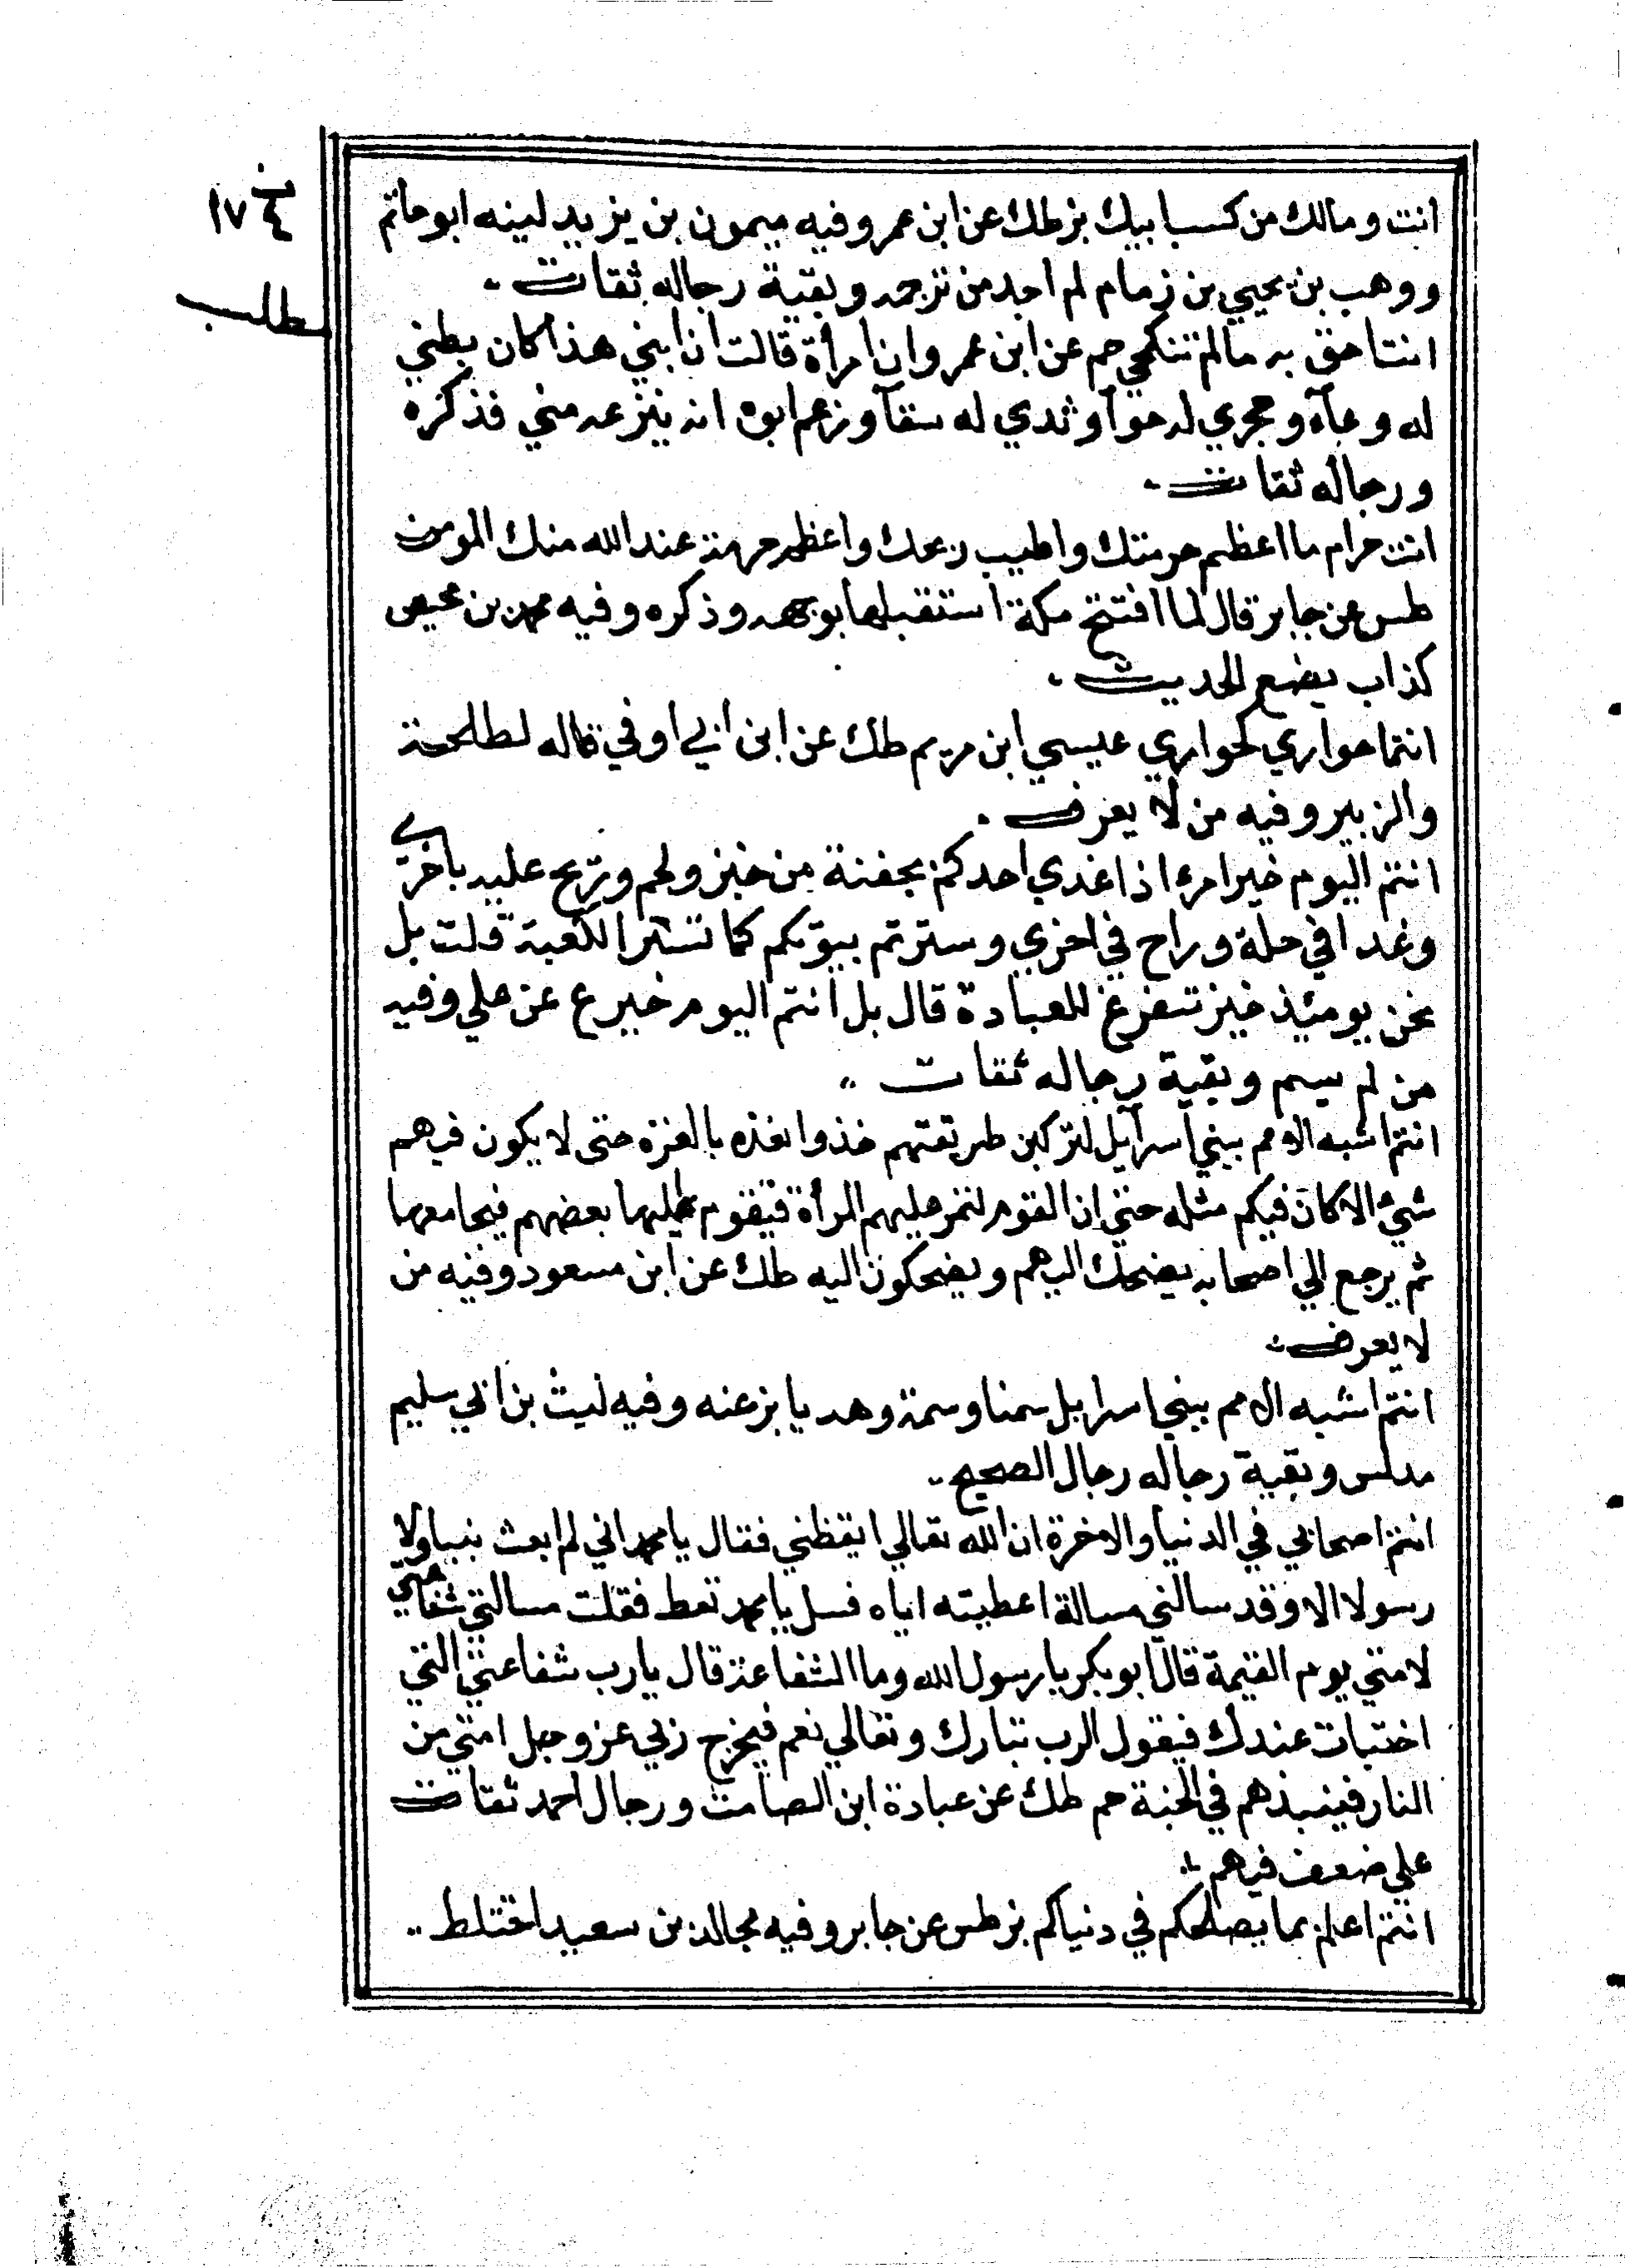 انت ومالك من كسب ابيك بز طك عن ابن عمر وفيه ميمون بن يزيد لينه ابو حاتم
ووهب بن يحيي بن زمام لم اجد من ترجمه وبقية رجاله ثقات
انت احق به مالم تنكحي حم عن ابن عمرو ان امرأة قالت ان ابني هذا كان بطني
له وعآء وحجري له حوآ وثدي له سقآ وزعم ابوه انه ينزعه مني فذكره
ورجاله ثقات
انت حرام ما اعظم حرمتك واطيب ريحك واعظم حرمة عند الله منك المومن
طس عن جابر قال لما افتتح مكة استقبلها بوجهه وذكره وفيه محمد بن محيص
كذاب يضع الحديث
انتما حواري كحواري عيسي ابن مريم طك عن ابن ابي اوفي قاله لطلحة
والزبير وفيه من لا يعرف
انتم اليوم خير امر اذا غدي احدكم بجفنة من خبز ولحم وتريح عليه باخري
وغدا في حلة وراح في اخري وسترتم بيوتكم كما تستر الكعبة قلت بل
نحن يومئذ خير نتفرغ للعبادة قال بل انتم اليوم خير ع عن علي وفيه
من لم يسم وبقية رجاله ثقات
انتم اشبه الامم ببني اسرآيل لتركبن طريقتهم حذو القذه بالقذه حتى لا يكون فيهم
شيء الا كان فيكم مثله حتي ان القوم لتمر عليهم المرأة فيقوم اليها بعضهم فيجامعها
ثم يرجع الي اصحابه يضحك اليهم ويضحكون اليه طك عن ابن مسعود وفيه من
لا يعرف
انتم اشبه الامم ببني اسرايل سمتا وسمة وهديا بز عنه وفيه ليث بن ابي سليم
مدلس وبقية رجاله رجال الصحيح
انتم اصحابي في الدنيا والاخرة ان الله تعالي ايقظني فقال يا محمد اني لم ابعث نبيا ولا
رسولا الا وقد سالني مسالة اعطيته اياه فسل يا محمد تعط فقلت مسالتي شفاعتي
لامتي يوم القيمة قال ابو بكر يا رسول الله وما الشفاعة قال يا رب شفاعتي التي
اختبات عندك فيقول الرب تبارك وتعالي نعم فيخرج ربي عز وجل امتي من
النار فينبذهم في الجنة حم طك عن عبادة ابن الصامت ورجال احمد ثقات
علي ضعف فيهم
انتم اعلم بما يصلحكم في دنياكم بز طس عن جابر وفيه مجالد بن سعيد اختلط
١٧
مطلب